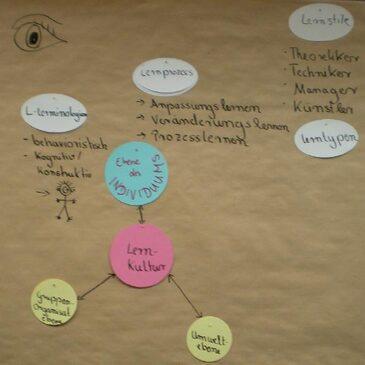 Lernstile
· Theoretiker
· Techniker
· Manager
· Künstler
Lerntypen
Lernprozess
→ Anpassungslernen
→ Veränderungslernen
→ Prozesslernen
- behavioristisch
- Kognitiv/
konstruktiv
Ebene des
INDIVIDUUMS
Lern-
Kultur
Gruppen-
ebene
Umwelt-
ebene